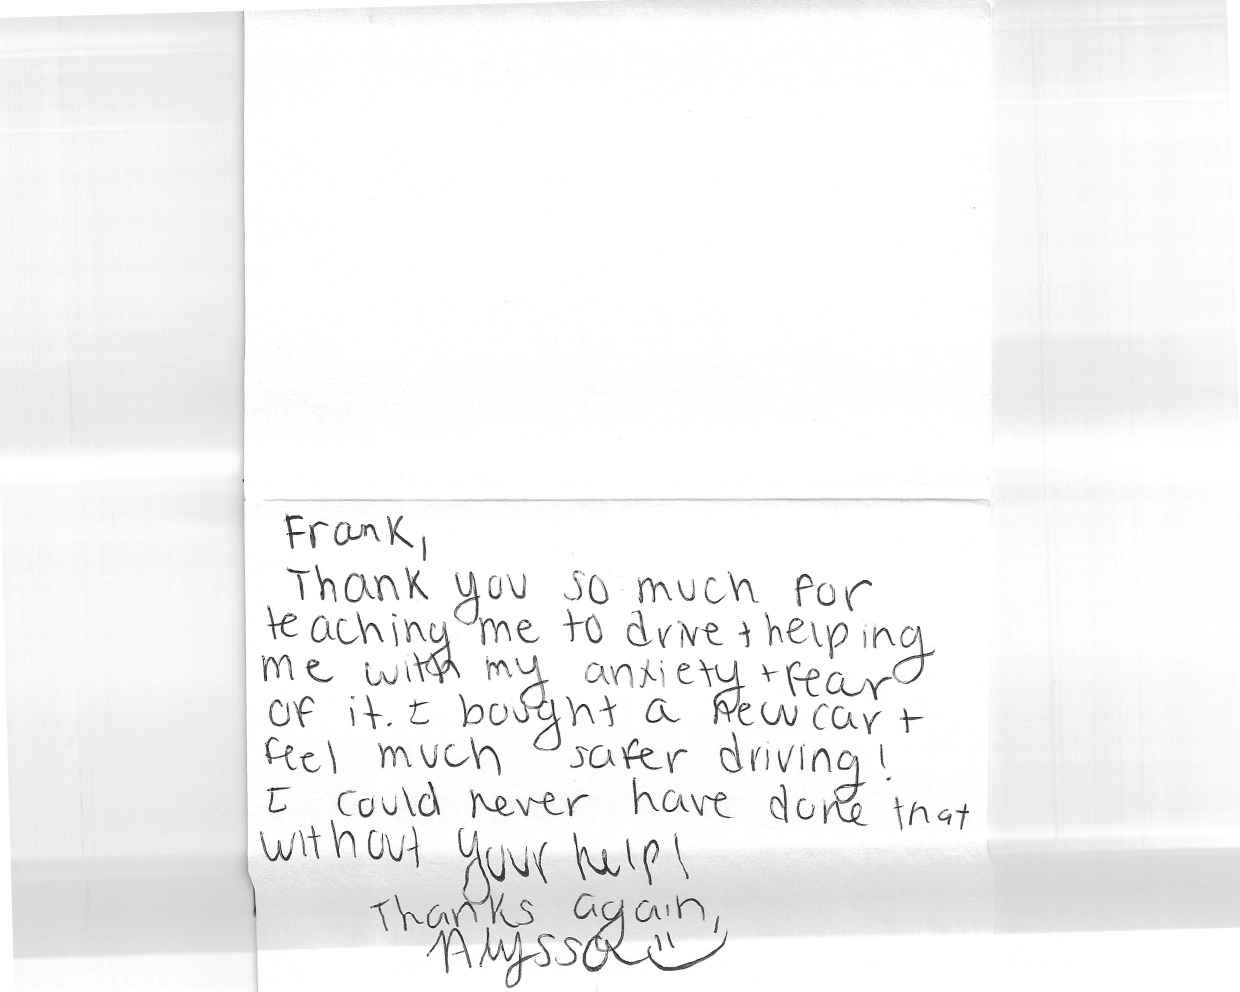 Frank,
Thank you so much for
teaching me to drive + helping
me with my anxiety + fear
of it. I bought a new car +
feel much safer driving!
I could never have done that
without your help!
Thanks again,
Alyssa